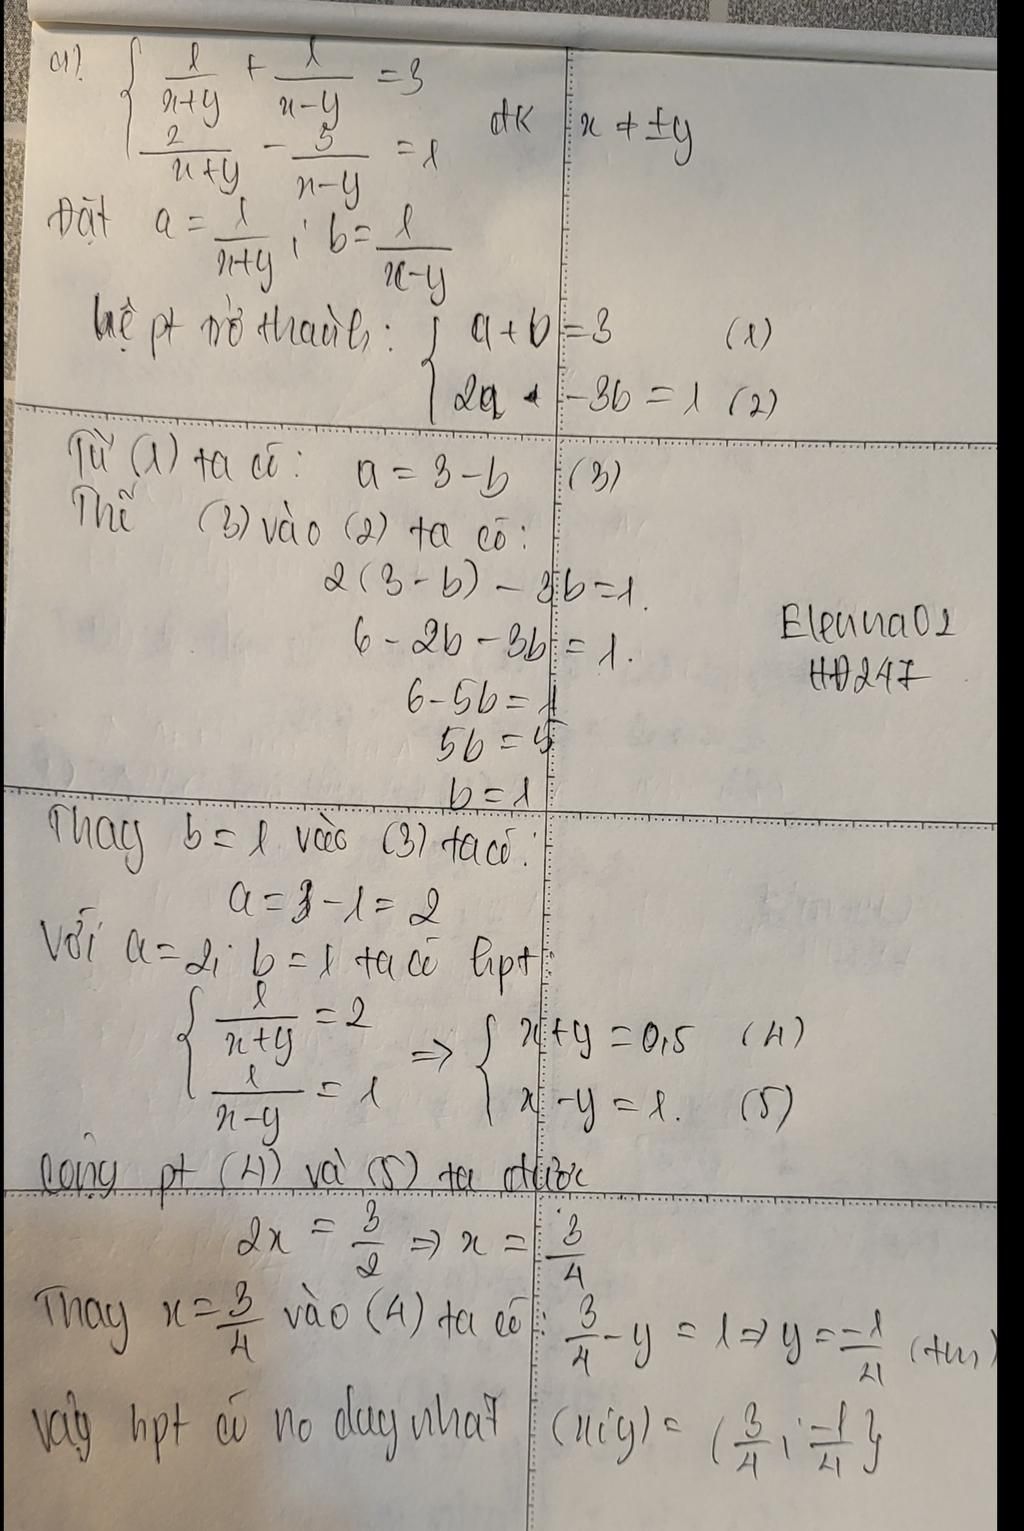 a) { 1/(x+y) + 1/(x-y) = 3
2/(x+y) - 3/(x-y) = 1 đk x ≠ ±y
Đặt a = 1/(x+y) ; b = 1/(x-y)
hệ pt trở thành: { a + b = 3 (1)
2a - 3b = 1 (2)
Từ (1) ta có: a = 3 - b (3)
Thế (3) vào (2) ta có:
2(3 - b) - 3b = 1.
6 - 2b - 3b = 1.
6 - 5b = 1
5b = 5
b = 1
Elenna02
HĐ247
Thay b = 1 vào (3) ta có:
a = 3 - 1 = 2
Với a = 2; b = 1 ta có hpt:
{ 1/(x+y) = 2 => { x + y = 0,5 (4)
1/(x-y) = 1 x - y = 1. (5)
Cộng pt (4) và (5) ta được
2x = 3/2 => x = 3/4
Thay x = 3/4 vào (4) ta có: 3/4 - y = 1 => y = -1/4 (tm)
vậy hpt có no duy nhất (x;y) = (3/4 ; -1/4}